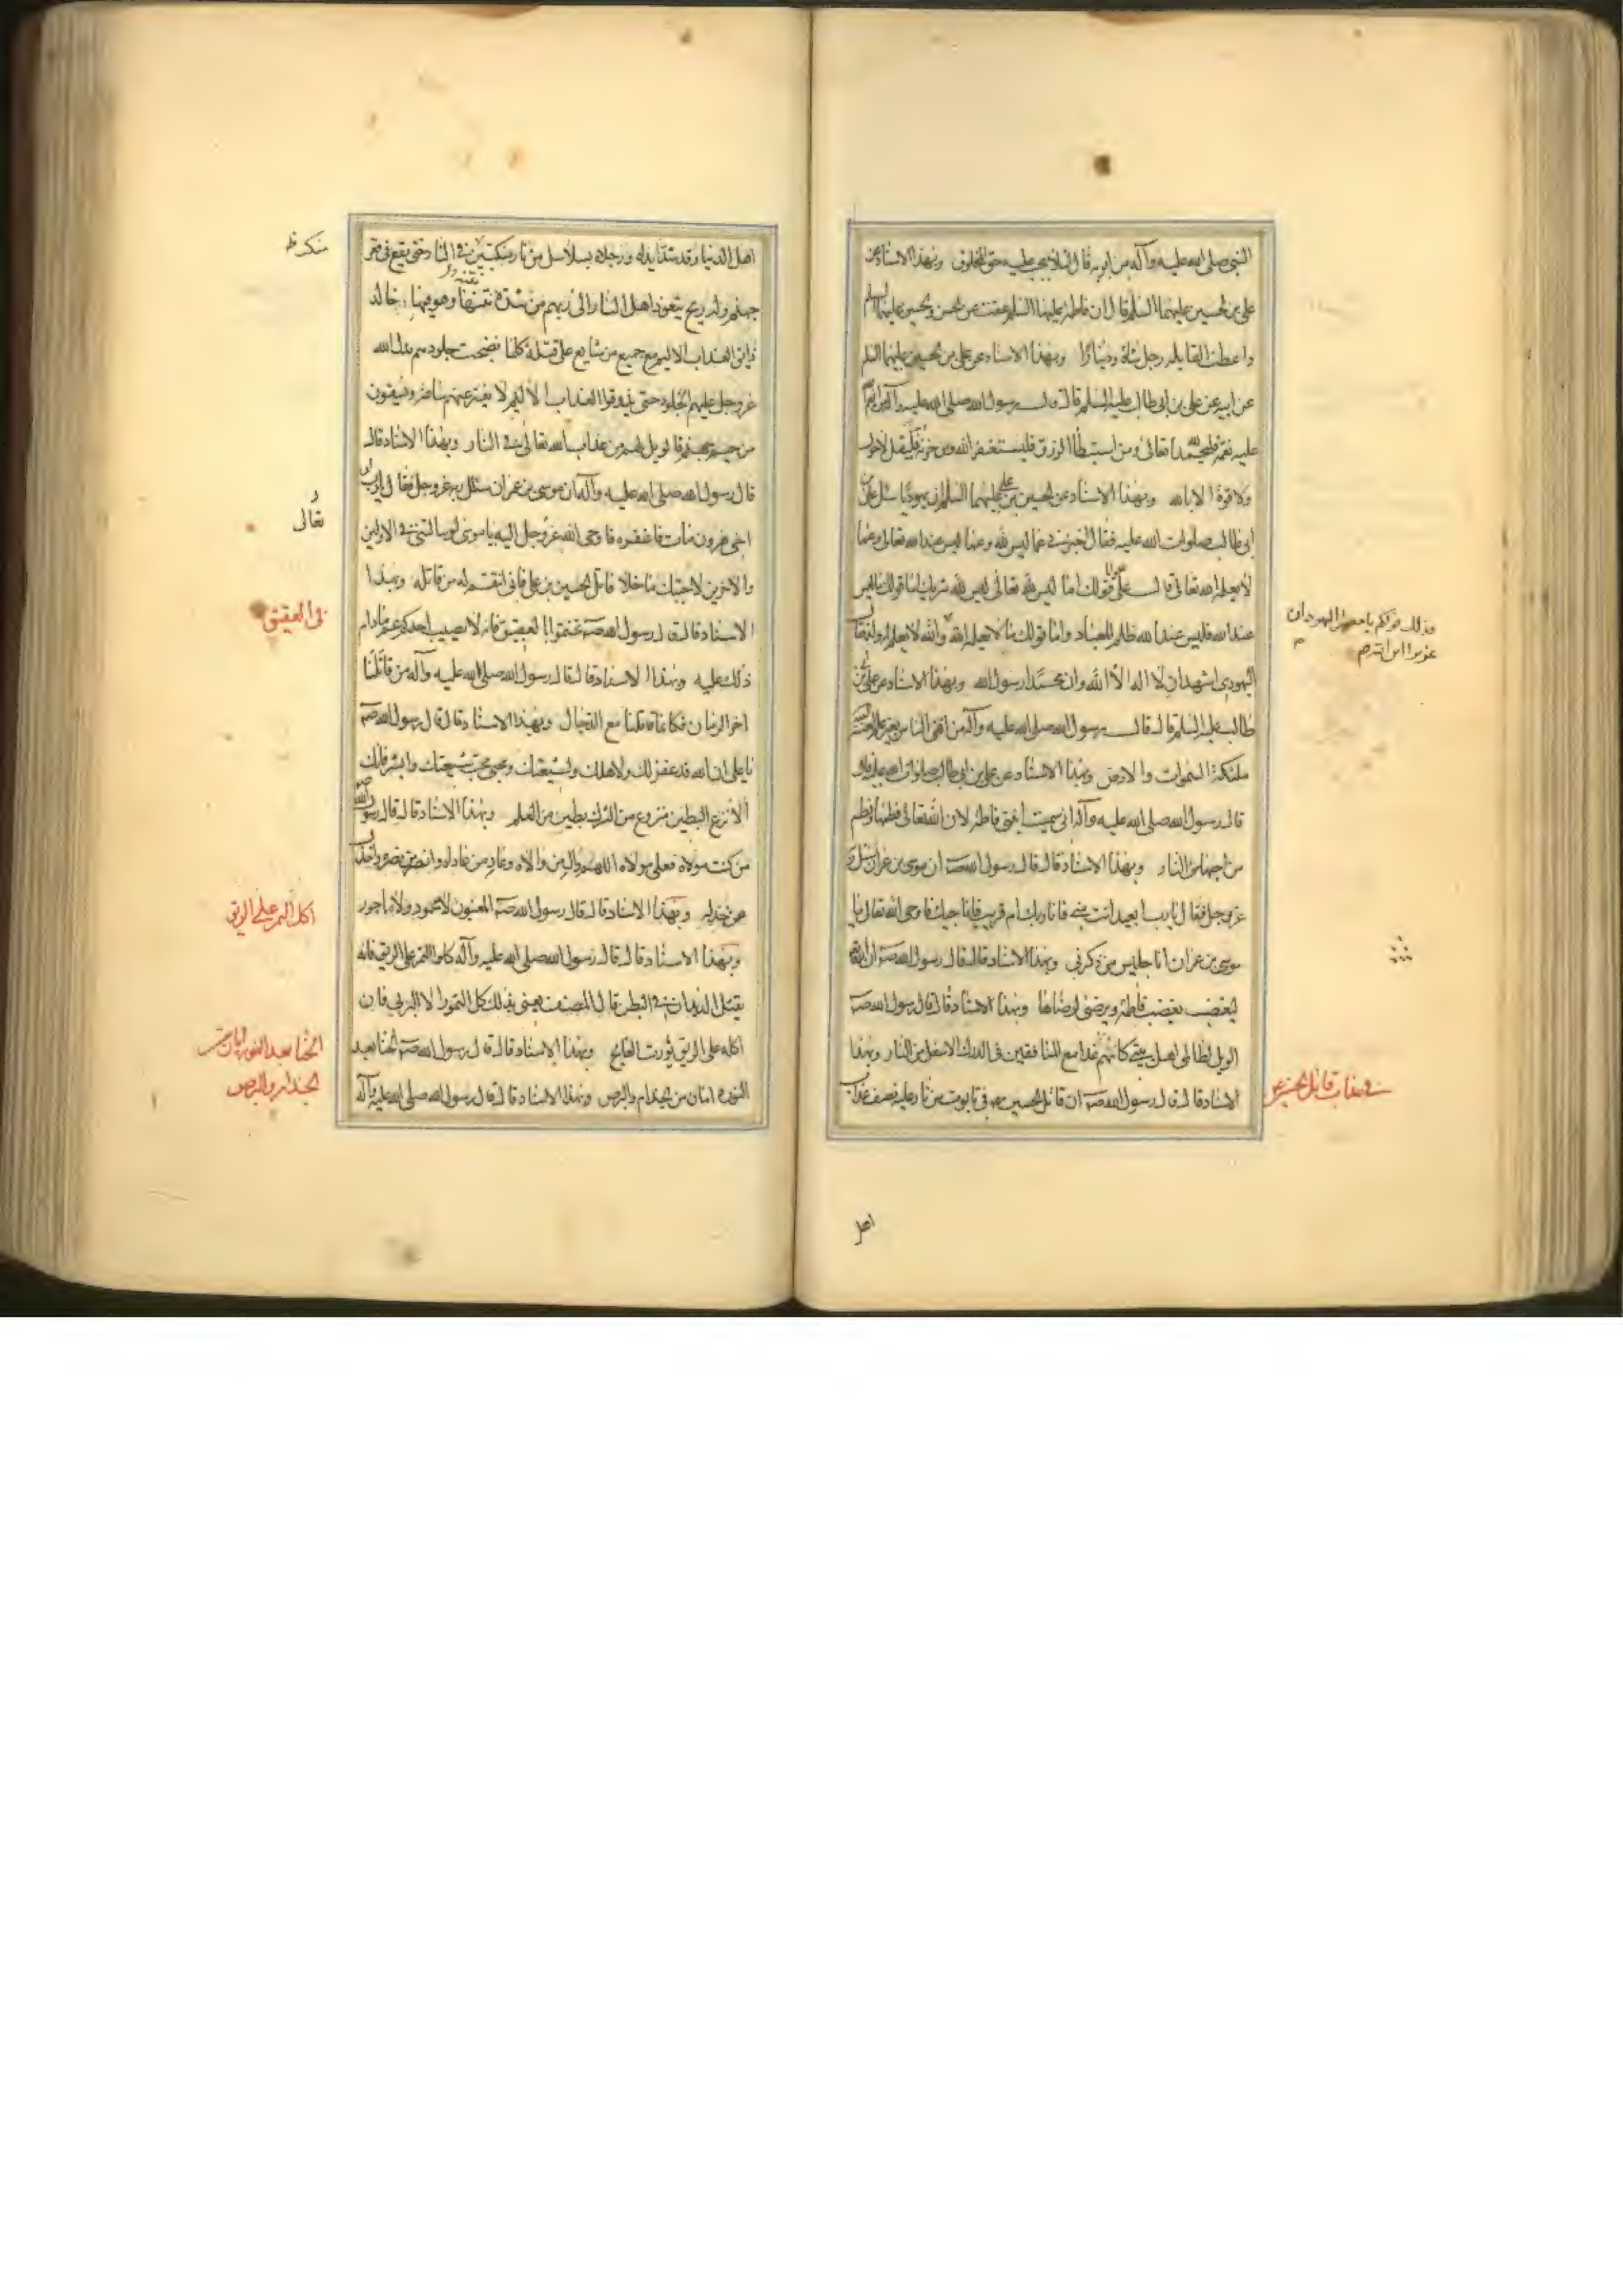 النبي صلى الله عليه وآله من ابويه قال لئلا يجب عليه حق المخلوق وبهذا الاسناد عن
علي بن الحسين عليهما السلم قال ان فاطمة عليها السلم عقت عن الحسن والحسين عليهما السلم
واعطت القابله رجل شاة ودينارا وبهذا الاسناد عن علي بن الحسين عليهما السلم
عن ابيه عن علي بن ابي طالب عليه السلم قال قال رسول الله صلى الله عليه وآله من انعم الله
عليه نعمة فليحمد الله تعالى ومن استبطأ الرزق فليستغفر الله ومن حزنه فليقل لا حول
ولا قوة الا بالله وبهذا الاسناد عن الحسين بن علي عليهما السلم ان يهوديا سئل علي بن
ابي طالب صلوات الله عليه فقال اخبرني عما ليس لله وعما ليس عند الله تعالى وعما
لا يعلمه الله تعالى قال علي قولك اما ليس لله تعالى فليس لله شريك اما قولك ما ليس
عند الله فليس عند الله ظلم للعباد واما قولك ما لا يعلمه الله والله لا يعلم له ولدا فقال
اليهودي اشهد ان لا اله الا الله وان محمدا رسول الله وبهذا الاسناد عن علي بن ابي
طالب عليه السلم قال قال رسول الله صلى الله عليه وآله من افتى الناس بغير علم لعنته
ملئكة السموات والارض وبهذا الاسناد عن علي بن ابي طالب صلوات الله عليه قال
قال رسول الله صلى الله عليه وآله اني سميت ابنتي فاطمة لان الله تعالى فطمها وفطم
من احبها من النار وبهذا الاسناد قال قال رسول الله صه ان موسى بن عمران سئل ربه
عز وجل فقال يا رب ابعيد انت مني فاناديك ام قريب فاناجيك فاوحى الله تعالى يا
موسى بن عمران انا جليس من ذكرني وبهذا الاسناد قال قال رسول الله صه ان الله
ليغضب بغضب فاطمة ويرضى لرضاها وبهذا الاسناد قال قال رسول الله صه
الويل لظالمي اهل بيتي كانهم غدا مع المنافقين في الدرك الاسفل من النار وبهذا
الاسناد قال قال رسول الله صه ان قاتل الحسين في تابوت من نار عليه نصف عذاب
وذلك قولكم يا معشر اليهود ان
عزيرا ابن الله
في عذاب قاتل الحسين
اهل
اهل الدنيا وقد شد يداه ورجلاه بسلاسل من نار منكبين في النار حتى يقع في قعر
جهنم وله ريح يتعوذ اهل النار الى ربهم من شدة نتنها وهو فيها خالد
ذايق العذاب الاليم مع جميع من شايع على قتله كلما نضجت جلودهم بدل الله
عز وجل عليهم الجلود حتى يذوقوا العذاب الاليم لا يفتر عنهم ساعة ويسقون
من حميم جهنم فالويل لهم من عذاب الله تعالى في النار وبهذا الاسناد قال
قال رسول الله صلى الله عليه وآله ان موسى بن عمران سئل ربه عز وجل فقال يا رب ان
اخي هرون مات فاغفر له فاوحى الله عز وجل اليه يا موسى لو سالتني في الاولين
والاخرين لاجبتك ما خلا قاتل الحسين بن علي فاني انتقم له من قاتله وبهذا
الاسناد قال قال رسول الله صه تختموا بالعقيق فانه لا يصيب احدكم غم ما دام
ذلك عليه وبهذا الاسناد قال قال رسول الله صلى الله عليه وآله من قاتلنا
اخر الزمان فكانما قاتلنا مع الدجال وبهذا الاسناد قال قال رسول الله صه
يا علي ان الله قد غفر لك ولاهلك ولشيعتك ومحبي شيعتك ومحبي محبي شيعتك وابشر فانك
الانزع البطين منزوع من الشرك بطين من العلم وبهذا الاسناد قال قال رسول الله
من كنت مولاه فعلي مولاه اللهم وال من والاه وعاد من عاداه وانصر من نصره واخذل
من خذله وبهذا الاسناد قال قال رسول الله صه المغبون لا محمود ولا ماجور
وبهذا الاسناد قال قال رسول الله صلى الله عليه وآله كلوا التمر على الريق فانه
يقتل الديدان في البطن قال المصنف يعني بذلك كل التمور الا البرني فان
اكله على الريق يورث الفالج وبهذا الاسناد قال قال رسول الله صه الحنا بعد
النورة امان من الجذام والبرص وبهذا الاسناد قال قال رسول الله صلى الله عليه وآله
تعالى
في العقيق
اكل التمر على الريق
الحنا بعد النورة امان من
الجذام والبرص